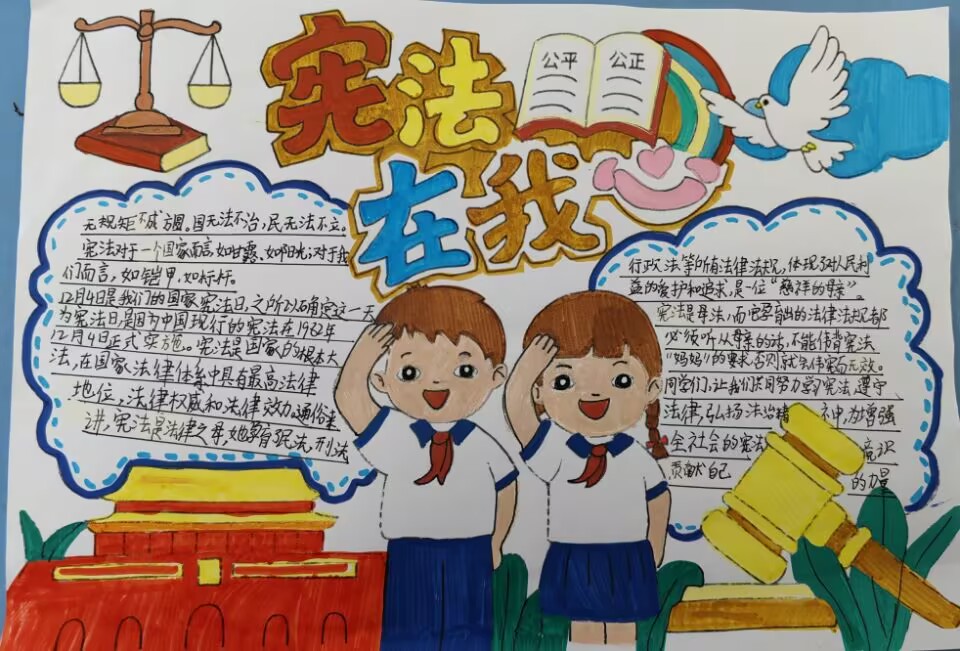 宪法
在我
公平
公正
无规矩不成方圆。国无法不治,民无法不立。
宪法对于一个国家而言,如甘露、如阳光;对于我
们而言,如铠甲,如标杆。
12月4日是我们的国家宪法日,之所以确定这一天
为宪法日,是因为中国现行的宪法在1982年
12月4日正式实施。宪法是国家的根本大
法,在国家法律体系中具有最高法律
地位,法律权威和法律效力。通俗来
讲,宪法是法律之母,她孕育了民法,刑法
行政法等所有法律法规,体现了对人民利
益的爱护和追求,是一位“慈祥的母亲”。
宪法是母法,而它孕育出的法律法规都
必须听从母亲的话,不能违背宪法
“妈妈”的要求,否则就会违宪而无效。
同学们,让我们共同努力学习宪法,遵守
法律,弘扬法治精 神,为增强
全社会的宪法 意识
贡献自己 的力量